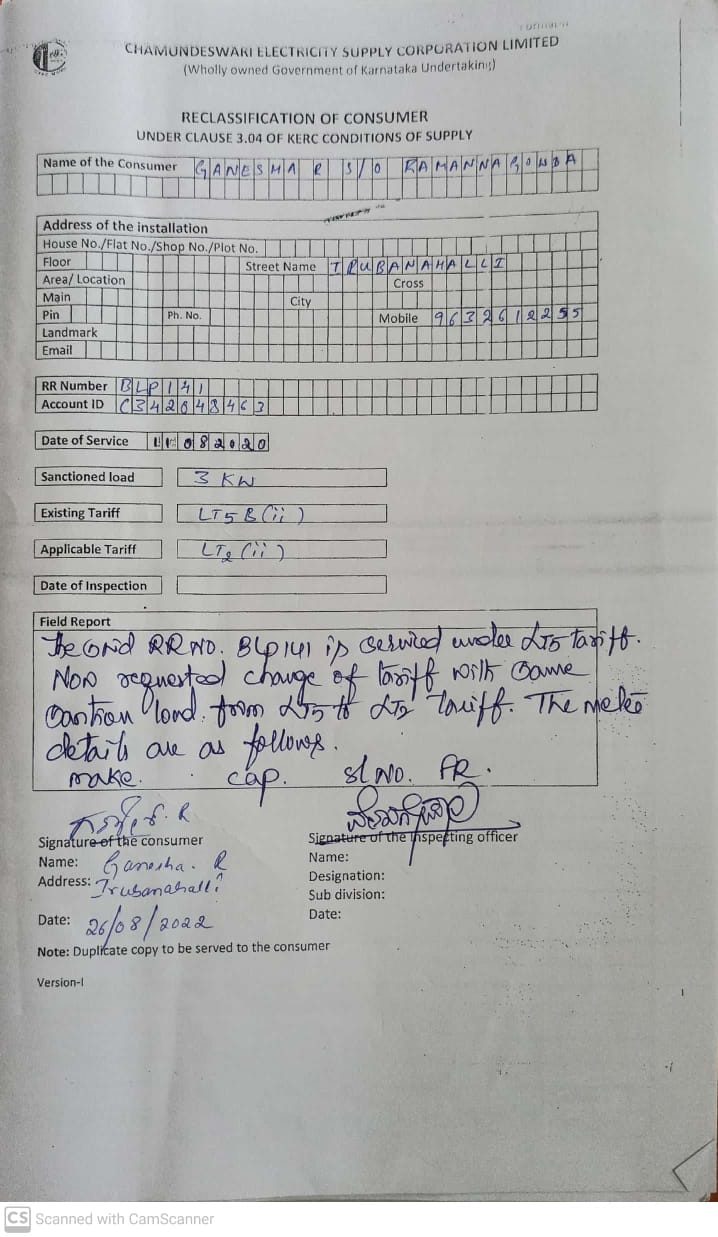 CHAMUNDESWARI ELECTRICITY SUPPLY CORPORATION LIMITED
(Wholly owned Government of Karnataka Undertaking)
RECLASSIFICATION OF CONSUMER
UNDER CLAUSE 3.04 OF KERC CONDITIONS OF SUPPLY
Name of the Consumer GANESHA R S/O RAMANNAGOWDA
Address of the installation
House No./Flat No./Shop No./Plot No.
Floor Street Name IRUBANAHALLI
Area/ Location Cross
Main City
Pin Ph. No. Mobile 9632612255
Landmark
Email
RR Number BLP141
Account ID
Date of Service 11082020
Sanctioned load 3 KW
Existing Tariff LT5B(ii)
Applicable Tariff LT2(ii)
Date of Inspection
Field Report
The RRNO. BLP141 is serviced under LT5 tariff.
Now requested change of tariff with same
load. from LT5 to LT2 tariff. The meter
details are as follows.
make. cap. sl NO. FR.
Signature of the consumer
Signature of the Inspecting officer
Name: Ganesha. R
Name:
Address: Irubanahalli
Designation:
Sub division:
Date: 26/08/2022
Date:
Note: Duplicate copy to be served to the consumer
Version-I
CS Scanned with CamScanner